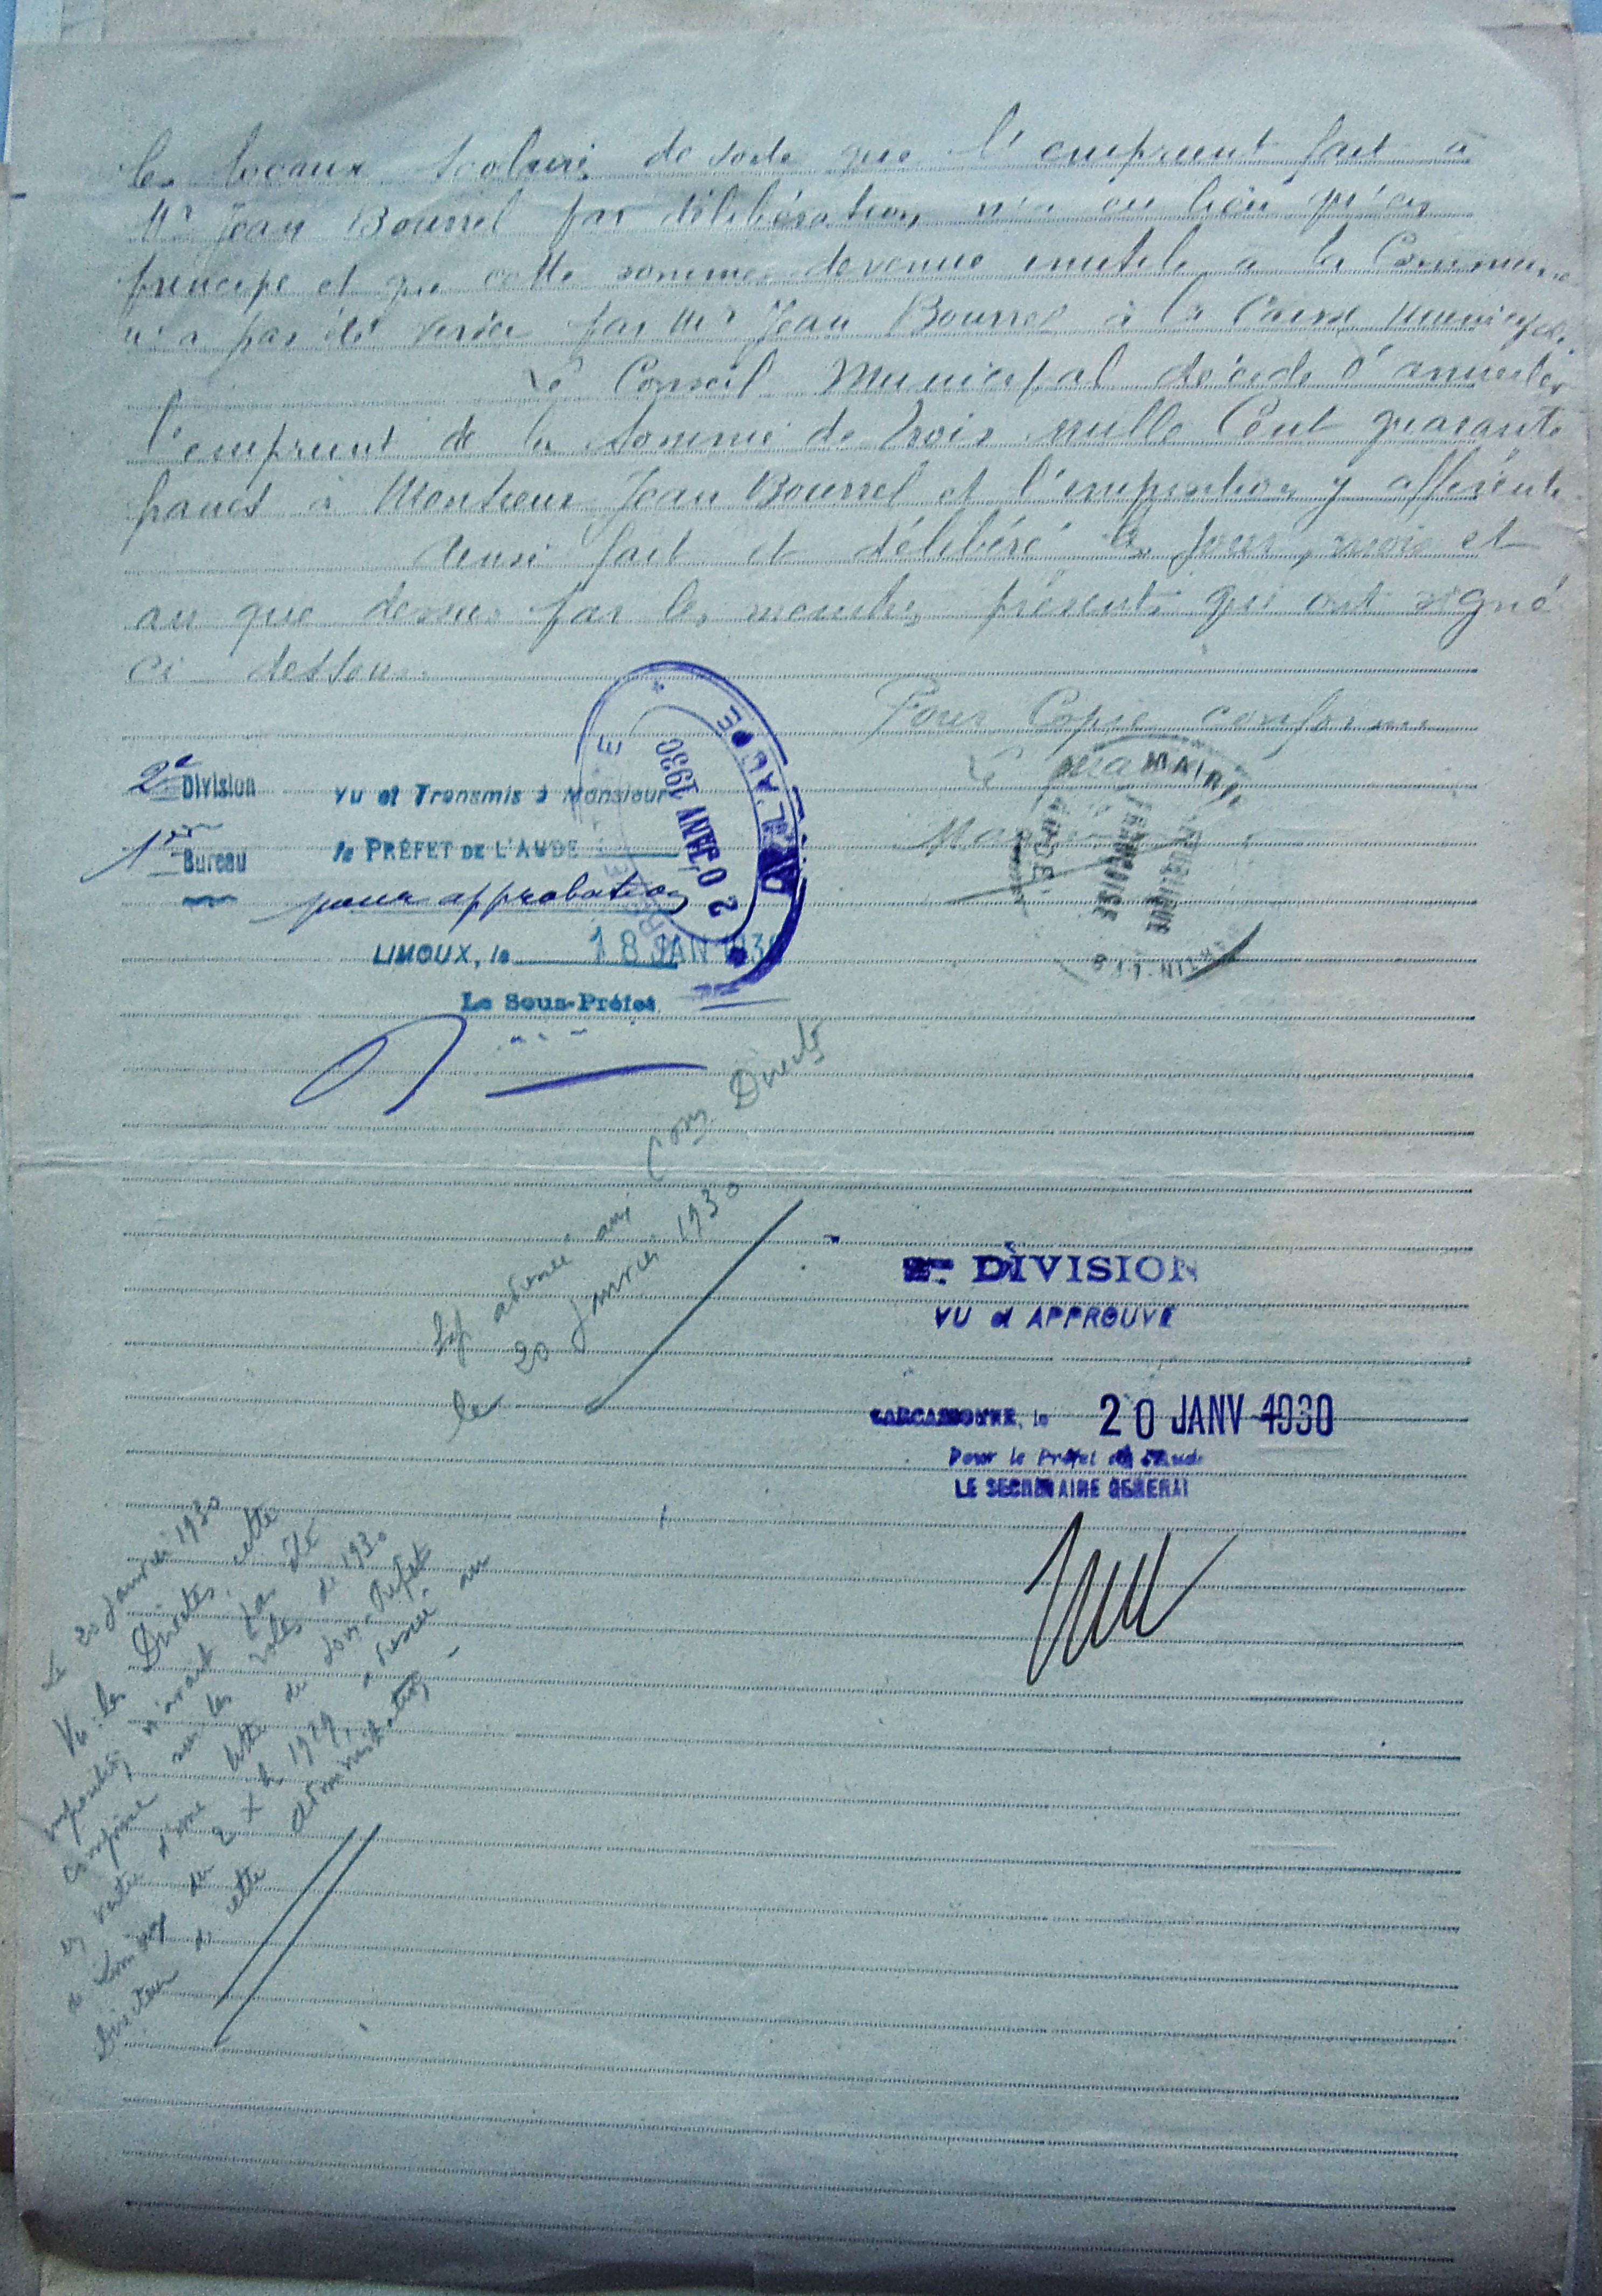 les locaux scolaires de sorte que l'emprunt fait à
Mr Jean Bourrel par délibération n'a eu lieu qu'en
principe et que cette somme devenue inutile à la Commune
n'a pas été versée par Mr Jean Bourrel à la Caisse Municipale.
Le Conseil Municipal décide d'annuler
l'emprunt de la somme de trois mille Cent quarante
francs à Monsieur Jean Bourrel et l'imposition y afférente
Ainsi fait et délibéré les jour, mois et
an que dessus par les membres présents qui ont signé
ci dessous.
Pour Copie conforme
Le
MAIRIE
RÉPUBLIQUE
FRANÇAISE
AUDE
2e Division
1er Bureau
Vu et Transmis à Monsieur
le PRÉFET DE L'AUDE
pour approbation
LIMOUX, le 18 JAN 1930
Le Sous-Préfet
20 JANV 1930
adressé aux Con Directes
le 20 Janvier 1930
2me DIVISION
VU et APPROUVÉ
CARCASSONNE, le 20 JANV 1930
Pour le Préfet de l'Aude
LE SECRÉTAIRE GÉNÉRAL
Le 20 Janvier 1930
Vu: les Directes, cette
imposition n'avait pas été
comprise sur les rôles de 1930
en vertu d'une lettre du Sous-Préfet
de Limoux du 2 Xbre 1929, adressée au
Directeur de cette administration -